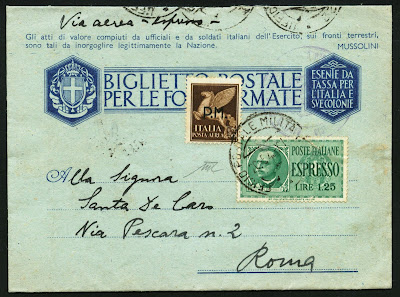 Via aerea - Espresso -
Gli atti di valore compiuti da ufficiali e da soldati italiani dell'Esercito, sui fronti terrestri,
sono tali da inorgoglire legittimamente la Nazione. MUSSOLINI
BIGLIETTO POSTALE
PER LE FORZE ARMATE
ESENTE DA
TASSA PER
L'ITALIA E
SUE COLONIE
P.M.
ITALIA
POSTA AEREA
POSTE ITALIANE
ESPRESSO
LIRE 1.25
Alla Signora
Santa De Caro
Via Pescara n. 2
Roma